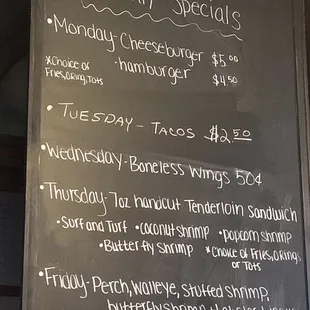 Specials
• Monday - Cheeseburger $5.00
*Choice of · hamburger $4.50
Fries, O.Ring, Tots
• TUESDAY - TACOS $2.50
• Wednesday - Boneless Wings 50¢
• Thursday - 7oz handcut Tenderloin Sandwich
• Surf and Turf • coconut shrimp • popcorn shrimp
• Butterfly Shrimp *Choice of Fries, O.Rings
or Tots
• Friday - Perch, Walleye, Stuffed Shrimp,
butterfly shrimp